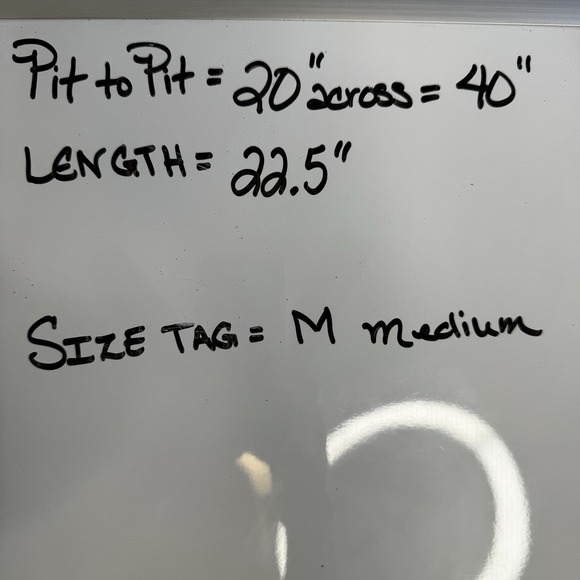 Pit to Pit = 20" across = 40"
LENGTH = 22.5"
SIZE TAG = M medium